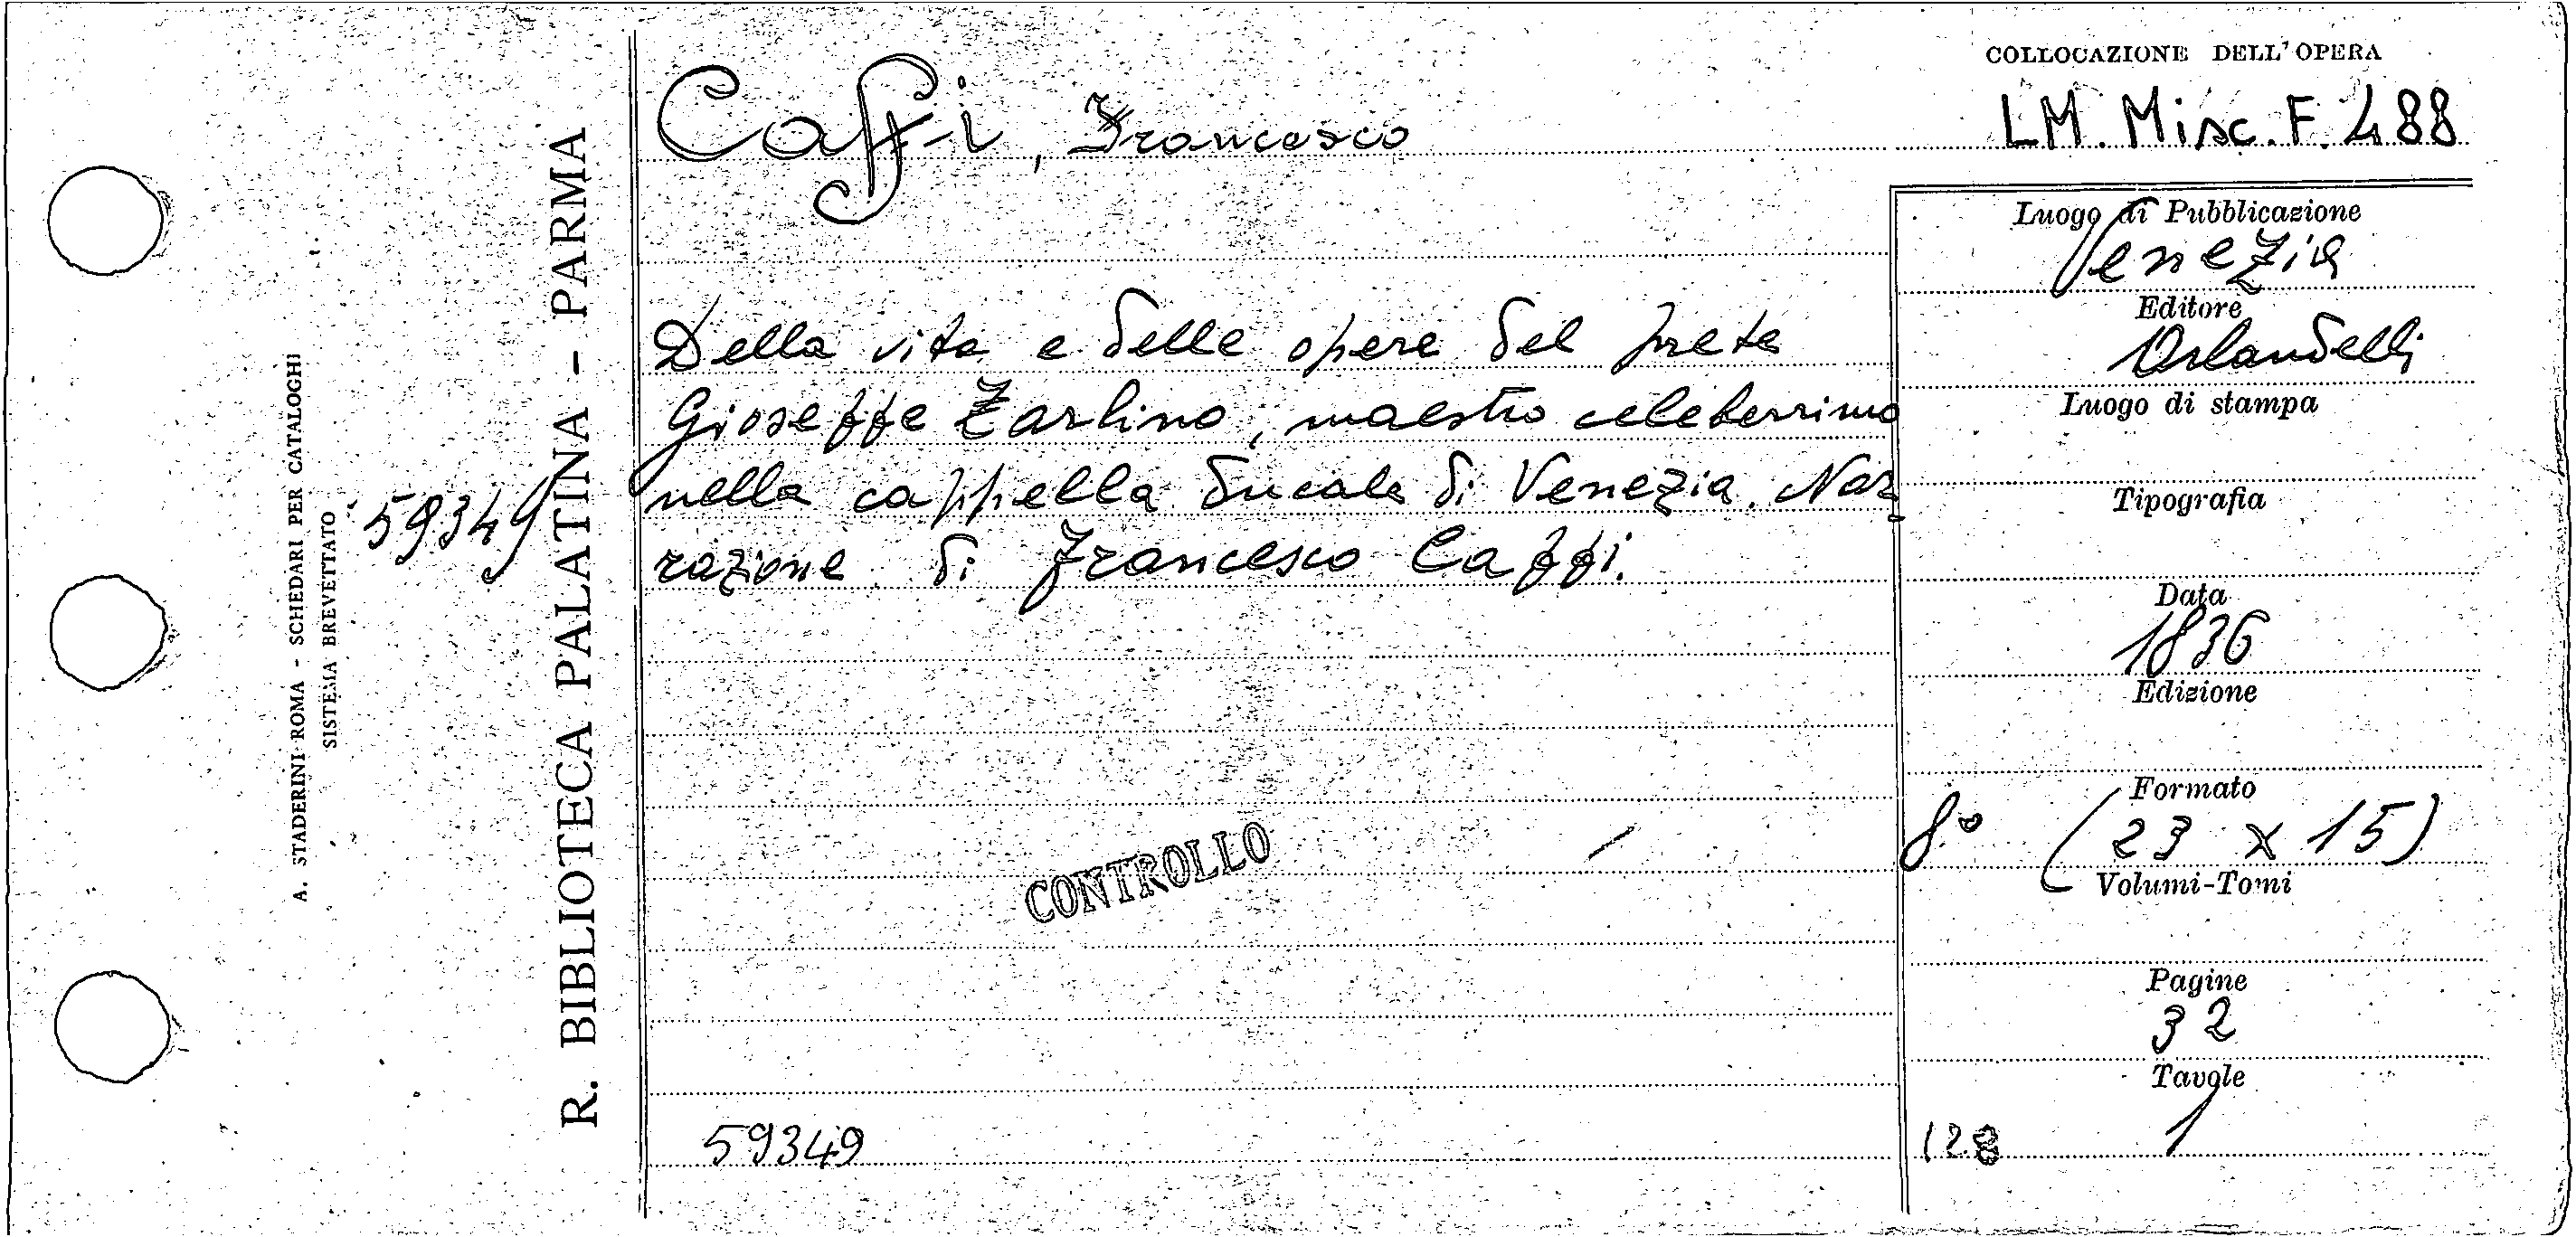 COLLOCAZIONE DELL'OPERA
LM. Misc. F. 488
Caffi, Francesco
Della vita e delle opere del prete
Gioseffe Zarlino, maestro celeberrimo
nella cappella ducale di Venezia. Nar-
razione di Francesco Caffi.
CONTROLLO
59349
Luogo di Pubblicazione
Venezia
Editore
Orlandelli
Luogo di stampa
Tipografia
Data
1836
Edizione
Formato
8° (23 x 15)
Volumi-Tomi
Pagine
32
Tavole
1
128
R. BIBLIOTECA PALATINA - PARMA
59349
A. STADERINI ROMA - SCHEDARI PER CATALOGHI
SISTEMA BREVETTATO